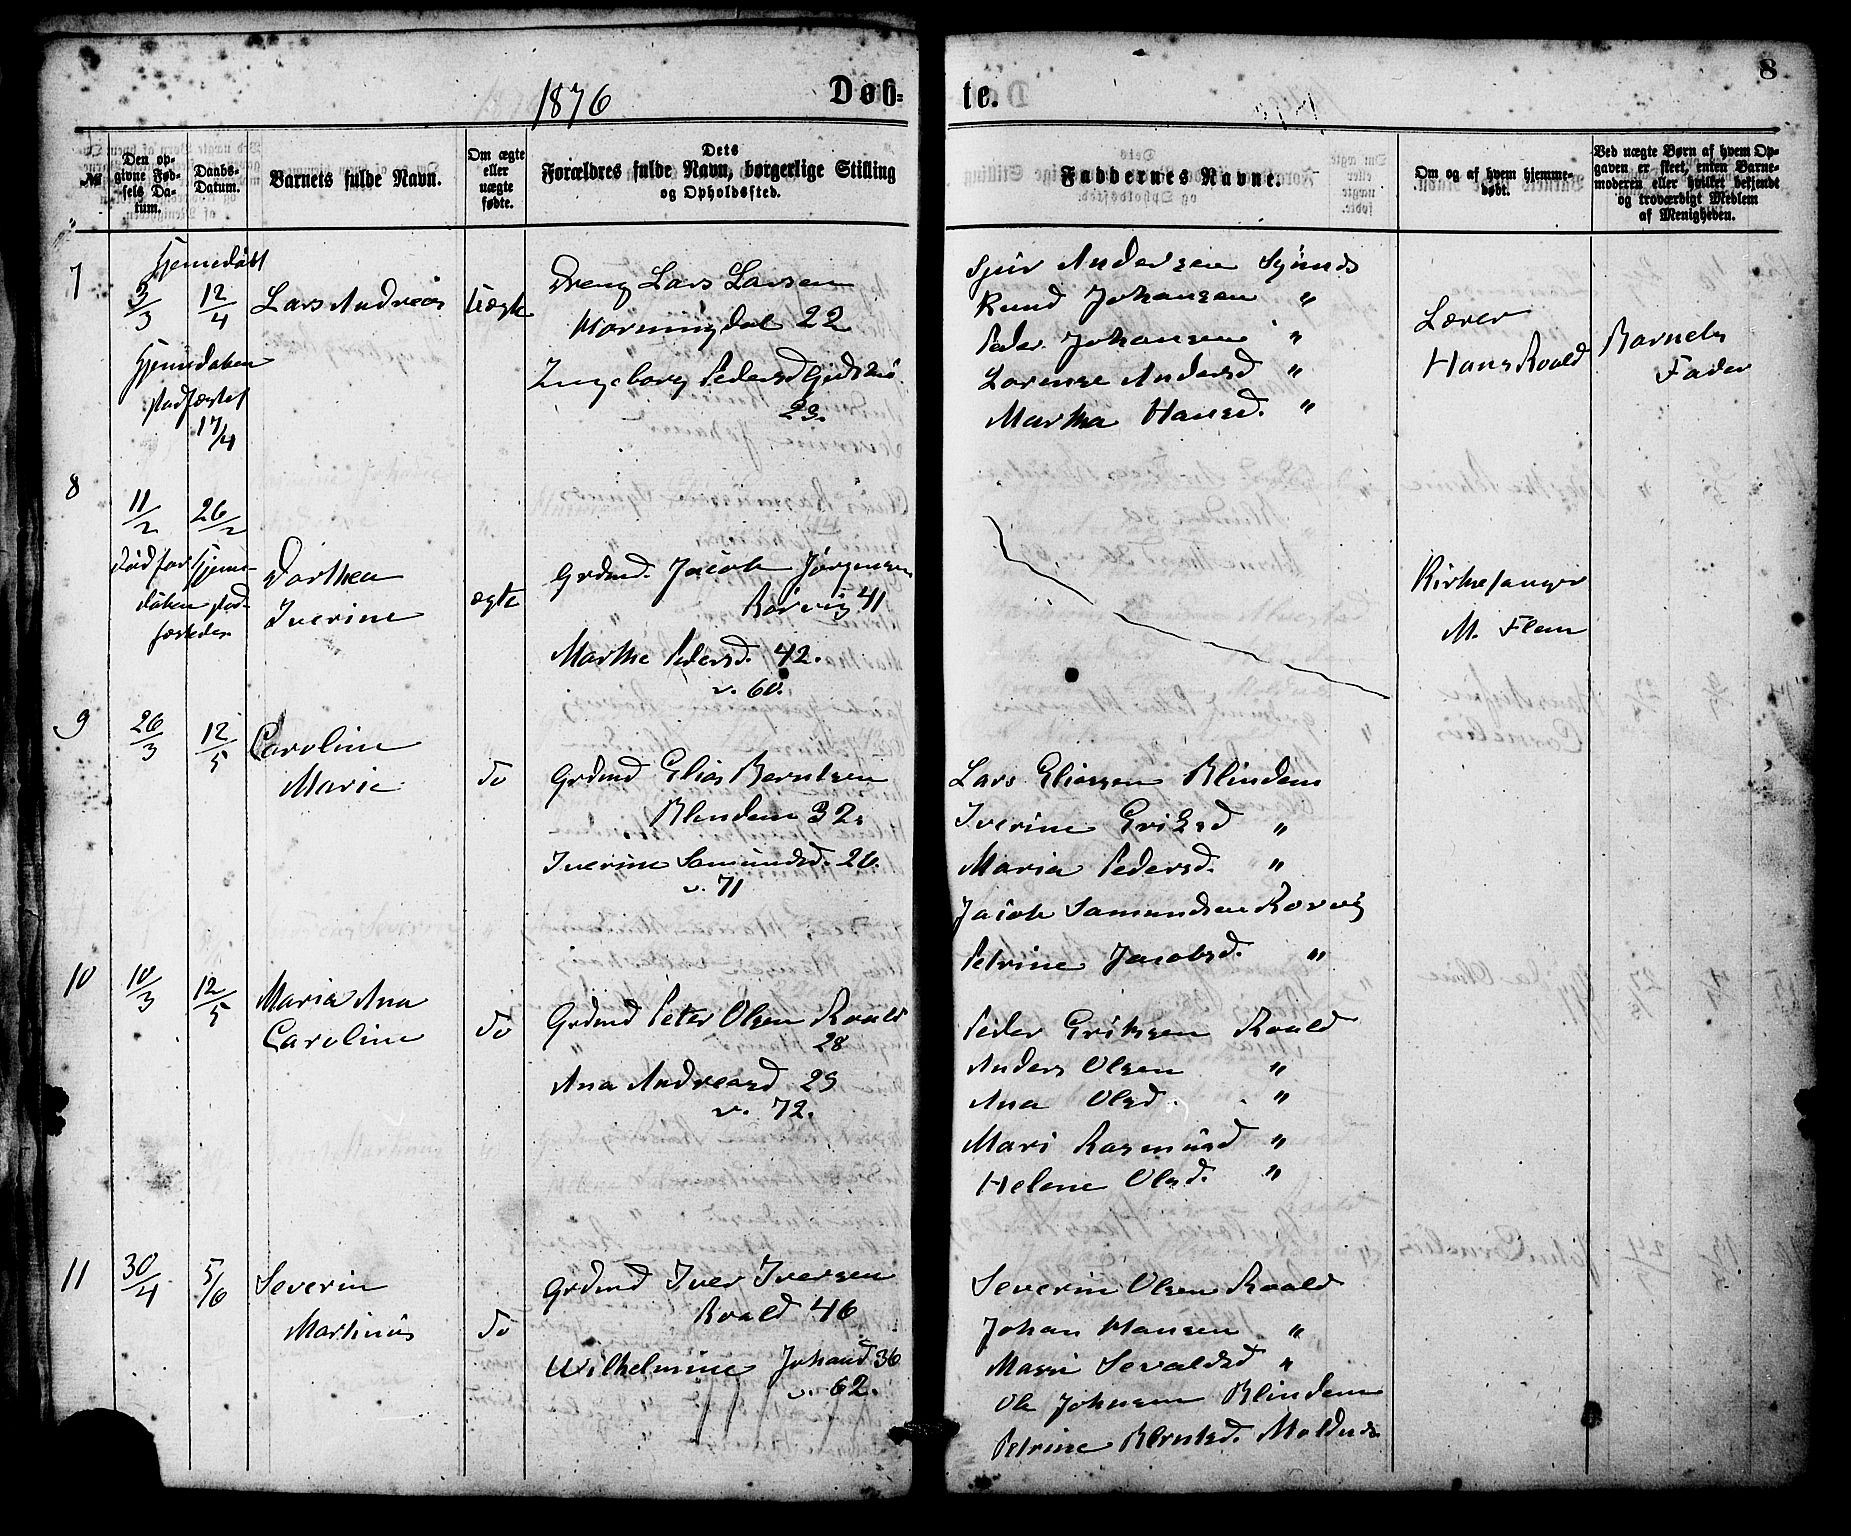 8
1876 Døb-
te.
№
Den opgivne Fødsels Datum.
Daabs-Datum.
Barnets fulde Navn.
Om ægte eller uægte fødte.
Dets Forældres fulde Navn, borgerlige Stilling og Opholdssted.
Faddernes Navne.
Om og af hvem hjemmedøbt.
Ved uægte Børn af hvem Opgaven er skeet, enten Barnemoderen eller hvilket beskende og troværdigt Medlem af Menigheden.
7
hjemmedøbt
3/3 12/4 Lars Andreas Uægte
hjemmedaaben
stadfæstet
17/4
Dreng Lars Larsen
Horningdal 22
Ingeborg Pedersd Gjedskø
23.
Sjur Andersen Synnes
Knud Johansen "
Peder Johansen "
Lorense Andersd "
Martha Hansd. "
Lærer
Hans Roald
Barnets
Fader
8
11/2 26/2
Død før hjemme-
daaben stad-
fæstedes
Dorthea
Iverine
ægte
Grdmd. Jacob Jørgensen
Rørvig 41
Marthe Pedersd. 42.
v. 60.
Kirkesanger
M. Flem
9
26/3 12/5
Caroline
Marie
do
Grdmd Elias Berntsen
Blindem 32.
Iverine Samundsd. 26.
v. 71
Lars Eliassen Blindem
Iverine Eriksd "
Maria Pedersd. "
Jacob Samundsen Rørvig
Petrine Jacobsd. "
10
10/3 12/5
Maria Ana
Caroline
do
Grdmd Peter Olsen Roald
28
Ana Andreasd 25
v. 72.
Peder Eriksen Roald
Anders Olsen "
Ana Olsd. "
Mari Rasmusd "
Helene Olsd. "
11
30/4 5/6
Severin
Martinus
do
Grdmd Iver Iversen
Roald 46
Wilhelmine Johansd 36
v. 62.
Severin Olsen Roald
Johan Hansen "
Massi Sevaldsd "
Ole Johnsen Blindem
Petrine Berntsd. Moldnes